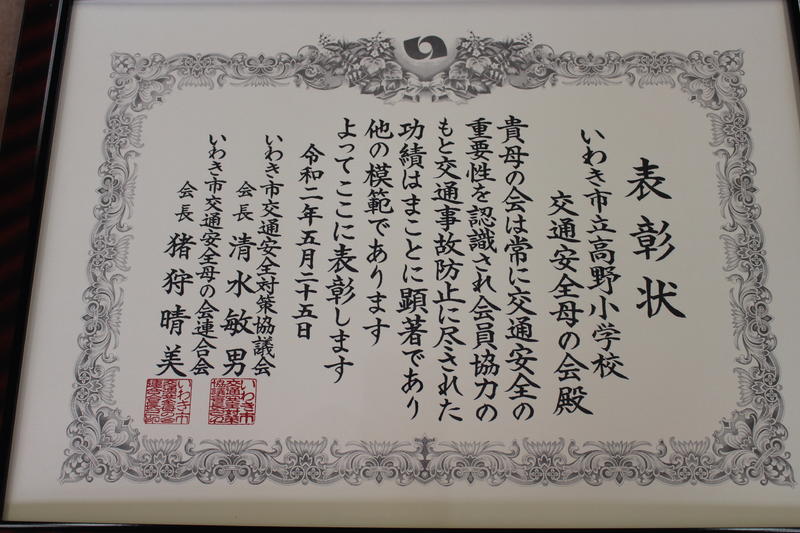 表彰状
いわき市立高野小学校
交通安全母の会殿
貴母の会は常に交通安全の
重要性を認識され会員協力の
もと交通事故防止に尽された
功績はまことに顕著であり
他の模範であります
よってここに表彰します
令和二年五月二十五日
いわき市交通安全対策協議会
会長 清水敏男
いわき市交通安全母の会連合会
会長 猪狩晴美